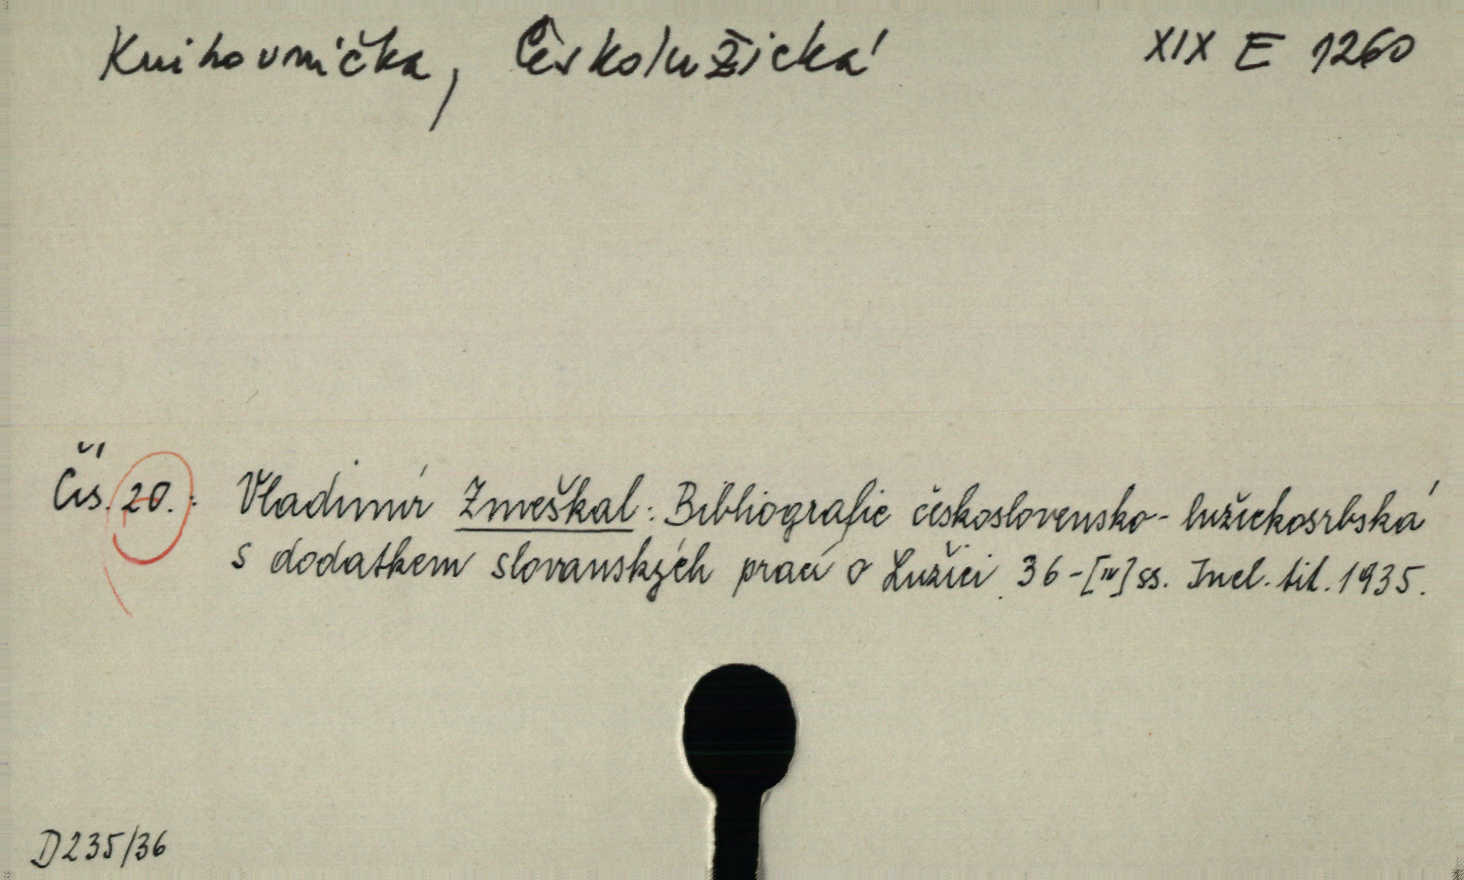 Knihovnička, Českolužická XIX E 1260
Čís. 20.: Vladimír Zmeškal: Bibliografie československo-lužickosrbská
s dodatkem slovanských prací o Lužici. 36-[IV] ss. Incl. tit. 1935.
D 235/36